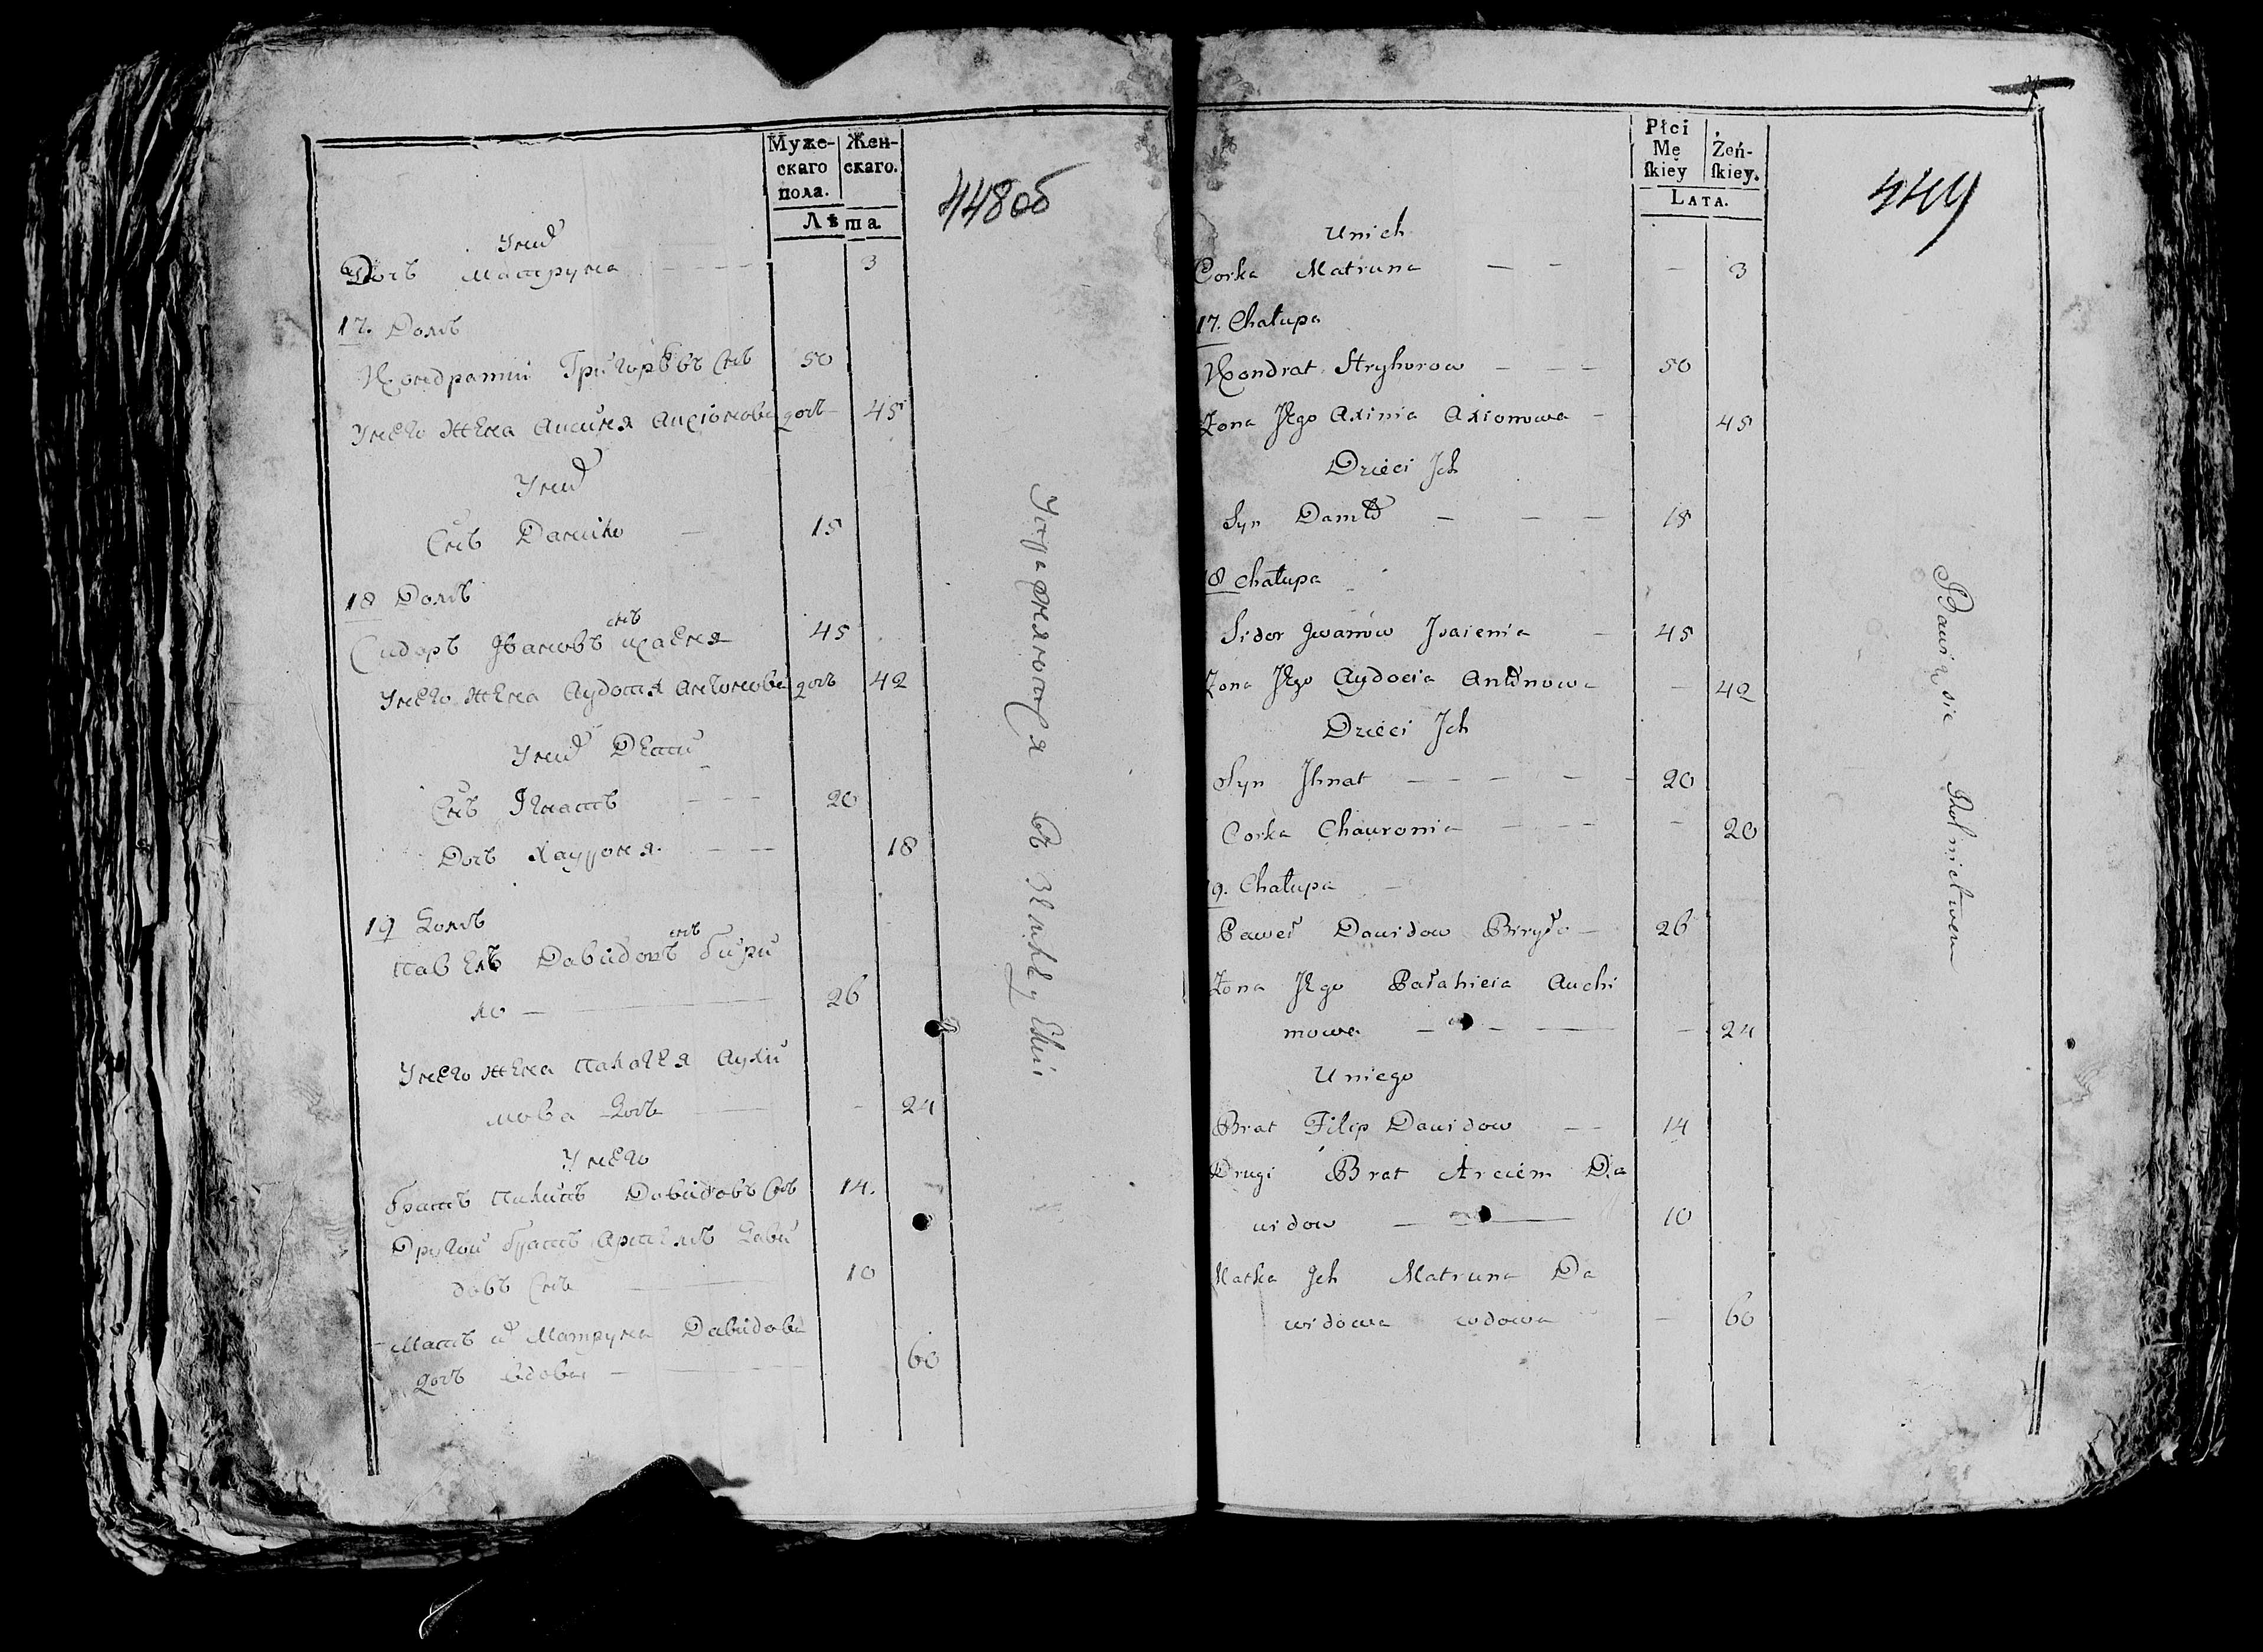 Муже-
скаго
пола.
Жен-
скаго.
Лѣта.
448 об
У них
Дочь Матруна 3
17. Домъ
Кондратий Григорьевъ Снъ 50
У него жена Аксиня Аксіонова дочь 45
У них
Снъ Данило 15
18 Домъ
Сидоръ Ивановъ снъ
У него жена Аудотя Антонова дочь 42
45
У них Дети
Снъ Игнатъ 20
Дочь Хауроня 18
19 Домъ
Павелъ Давидовъ снъ Бири
ло 26
У него жена Палагея Аухи
мова дочь 24
У него
братъ Давидовъ Снъ 14.
Другой братъ Артемъ Дави
довъ Снъ 10
Мать их Матруна Давидова
дочь вдова 60
Упражняются въ
Płci
Mę
ſkiey
Żeń-
ſkiey.
LATA.
449
U nich
Corka Matruna 3
17. Chałupa
Kondrat Hryhorow 50
Żona Jego Axinia Axionowa 45
Dzieci Jch
Syn Daniło 15
18 chałupa
Sidor Jwanow Jsaienia 45
Żona Jego Aydocia Antonowa 42
Dzieci Jch
Syn Jhnat 20
Corka Chauronia 20
19. Chałupa
Paweł Dawidow Biryło 26
Żona Jego Pałahieia Auchi
mowa 24
U niego
Brat Filip Dawidow 14
Drugi Brat Arciem Da
widow 10
Matka Jch Matruna Da
widowa wdowa 60
Bawią sie Rolnictwem